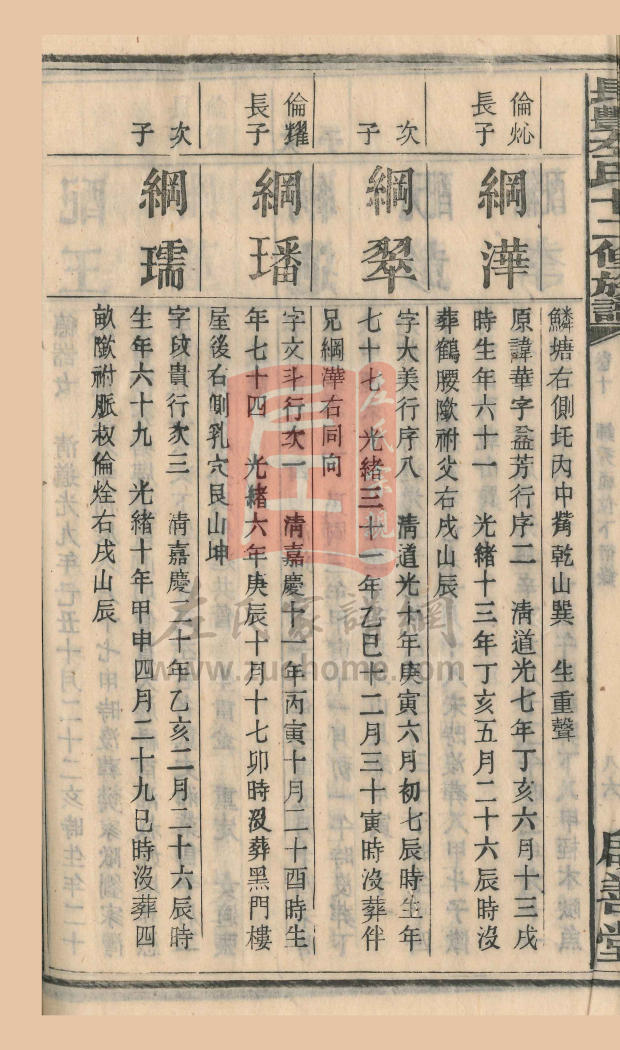 長豐左氏十二修族譜
卷十
八六
啟善堂
鱗塘右側圫內中嘴乾山巽 生重聲
倫
長子
綱澕
原諱華字益芳行序二 清道光七年丁亥六月十三戌
時生年六十一 光緒十三年丁亥五月二十六辰時沒
葬鶴腰歟祔父右戌山辰
次子
綱翠
字大美行序八 清道光十年庚寅六月初七辰時生年
七十七 光緒三十一年乙巳十二月三十寅時沒葬伴
兄綱澕右同向
倫耀
長子
綱璠
字文斗行次一 清嘉慶十一年丙寅十月二十酉時生
年七十四 光緒六年庚辰十月十七卯時沒葬黑門樓
屋後右側乳穴艮山坤
次子
綱瑀
字攻貴行次三 清嘉慶二十年乙亥二月二十六辰時
生年六十九 光緒十年甲申四月二十九巳時沒葬四
畝歟祔脈叔倫烇右戌山辰
左氏家譜網
www.zuohome.com